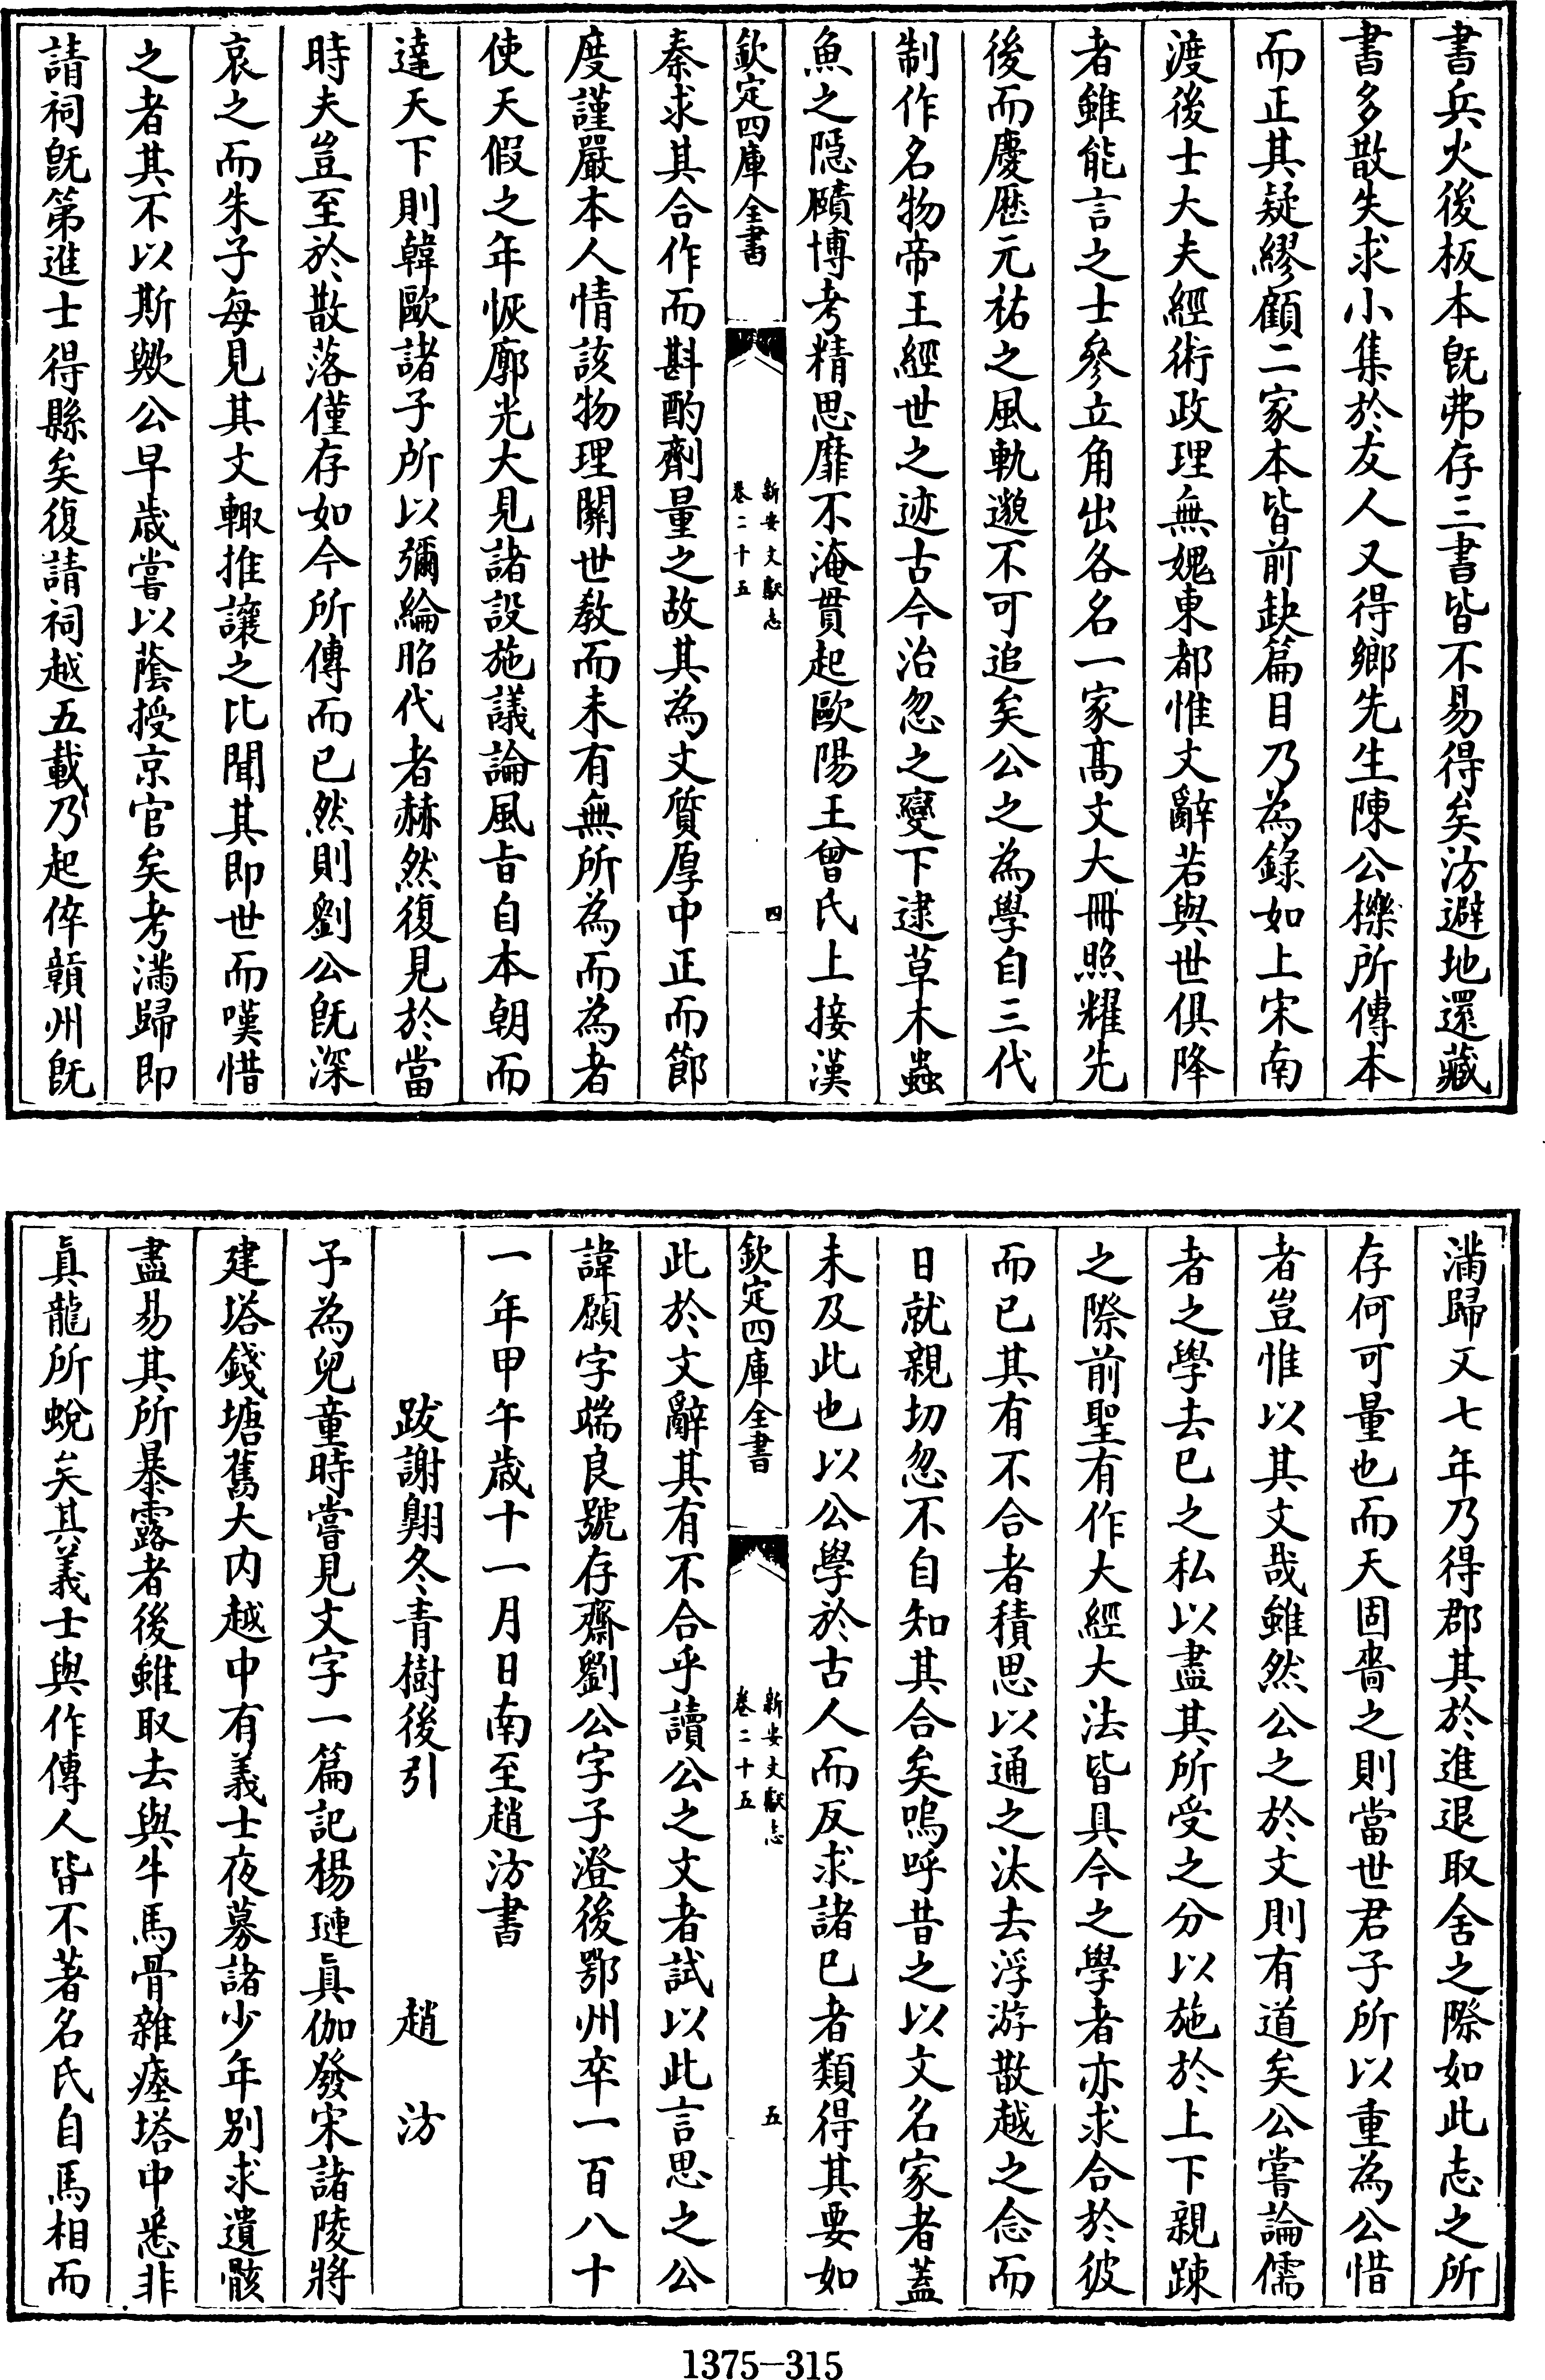 書兵火後板本旣弗存三書皆不易得矣汸避地還藏
書多散失求小集於友人又得鄉先生陳公櫟所傳本
而正其疑繆顧二家本皆前缺篇目乃為錄如上宋南
渡後士大夫經術政理無媿東都惟文辭若與世俱降
者雖能言之士參立角出各名一家髙文大冊照耀先
後而慶歴元祐之風軌邈不可追矣公之為學自三代
制作名物帝王經世之迹古今治忽之變下逮草木蟲
魚之隠賾博考精思靡不淹貫起歐陽王曾氏上接漢
欽定四庫全書
新安文獻志
卷二十五
四
秦求其合作而斟酌劑量之故其為文質厚中正而節
度謹嚴本人情該物理關世教而未有無所為而為者
使天假之年恢廓光大見諸設施議論風㫖自本朝而
達天下則韓歐諸子所以彌綸昭代者赫然復見於當
時夫豈至於散落僅存如今所傳而已然則劉公旣深
哀之而朱子每見其文輙推讓之比聞其即世而嘆惜
之者其不以斯歟公早歲嘗以蔭授京官矣考滿歸即
請祠旣第進士得縣矣復請祠越五載乃起倅贑州旣
滿歸又七年乃得郡其於進退取舍之際如此志之所
存何可量也而天固嗇之則當世君子所以重為公惜
者豈惟以其文哉雖然公之於文則有道矣公嘗論儒
者之學去已之私以盡其所受之分以施於上下親踈
之際前聖有作大經大法皆具今之學者亦求合於彼
而已其有不合者積思以通之汰去浮游散越之念而
日就親切忽不自知其合矣嗚呼昔之以文名家者蓋
未及此也以公學於古人而反求諸已者類得其要如
欽定四庫全書
新安文獻志
卷二十五
五
此於文辭其有不合乎讀公之文者試以此言思之公
諱願字端良號存齋劉公字子澄後鄂州卒一百八十
一年甲午歲十一月日南至趙汸書
跋謝翺冬青樹後引 趙汸
予為兒童時嘗見文字一篇記楊璉真伽發宋諸陵將
建塔錢塘舊大内越中有義士夜募諸少年别求遺骸
盡易其所暴露者後雖取去與牛馬骨雜瘞塔中悉非
真龍所蛻矣其義士與作傳人皆不著名氏自馬相而
1375-315